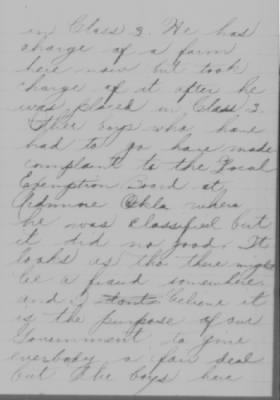 in Class 3. He has
charge of a farm
here now but took
charge of it after he
was placed in Class 3.
Other boys who have
had to go have made
complaint to the Local
Exemption Board at
Ardmore Okla where
he was classified but
it did no good. It
looks as tho there might
be a fraud somewhere
and I believe it
is the purpose of our
Government to give
everybody a fair deal
but the boys here